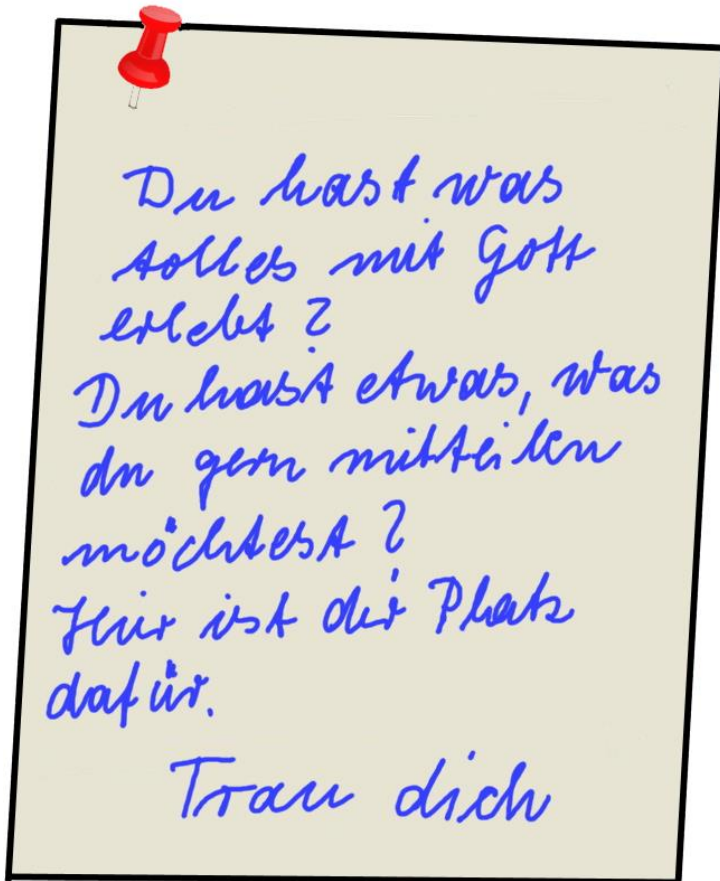 Du hast was
tolles mit Gott
erlebt?
Du hast etwas, was
du gern mitteilen
möchtest?
Hier ist der Platz
dafür.
Trau dich